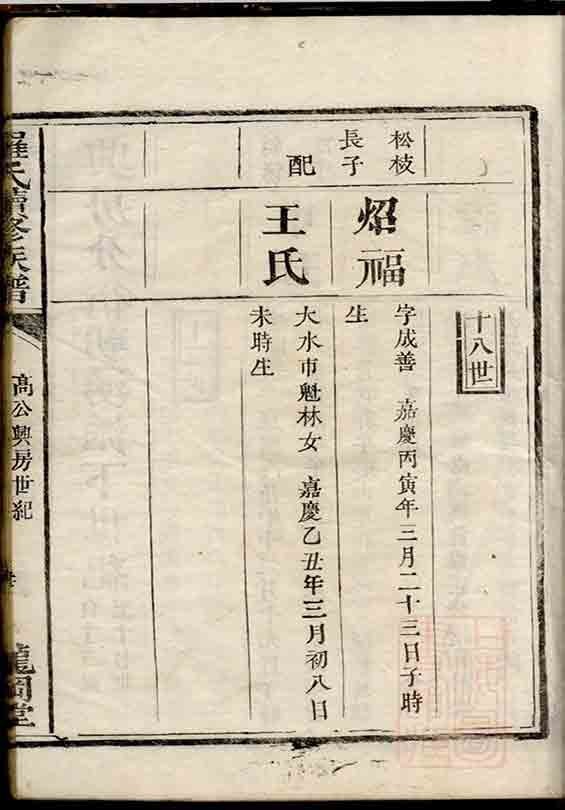 十八世
松枝
長子
炤福
字成善 嘉慶丙寅年三月二十三日子時
生
配
王氏
大水市魁林女 嘉慶乙丑年三月初八日
未時生
羅氏續修族譜
高公興房世紀
龍岡堂